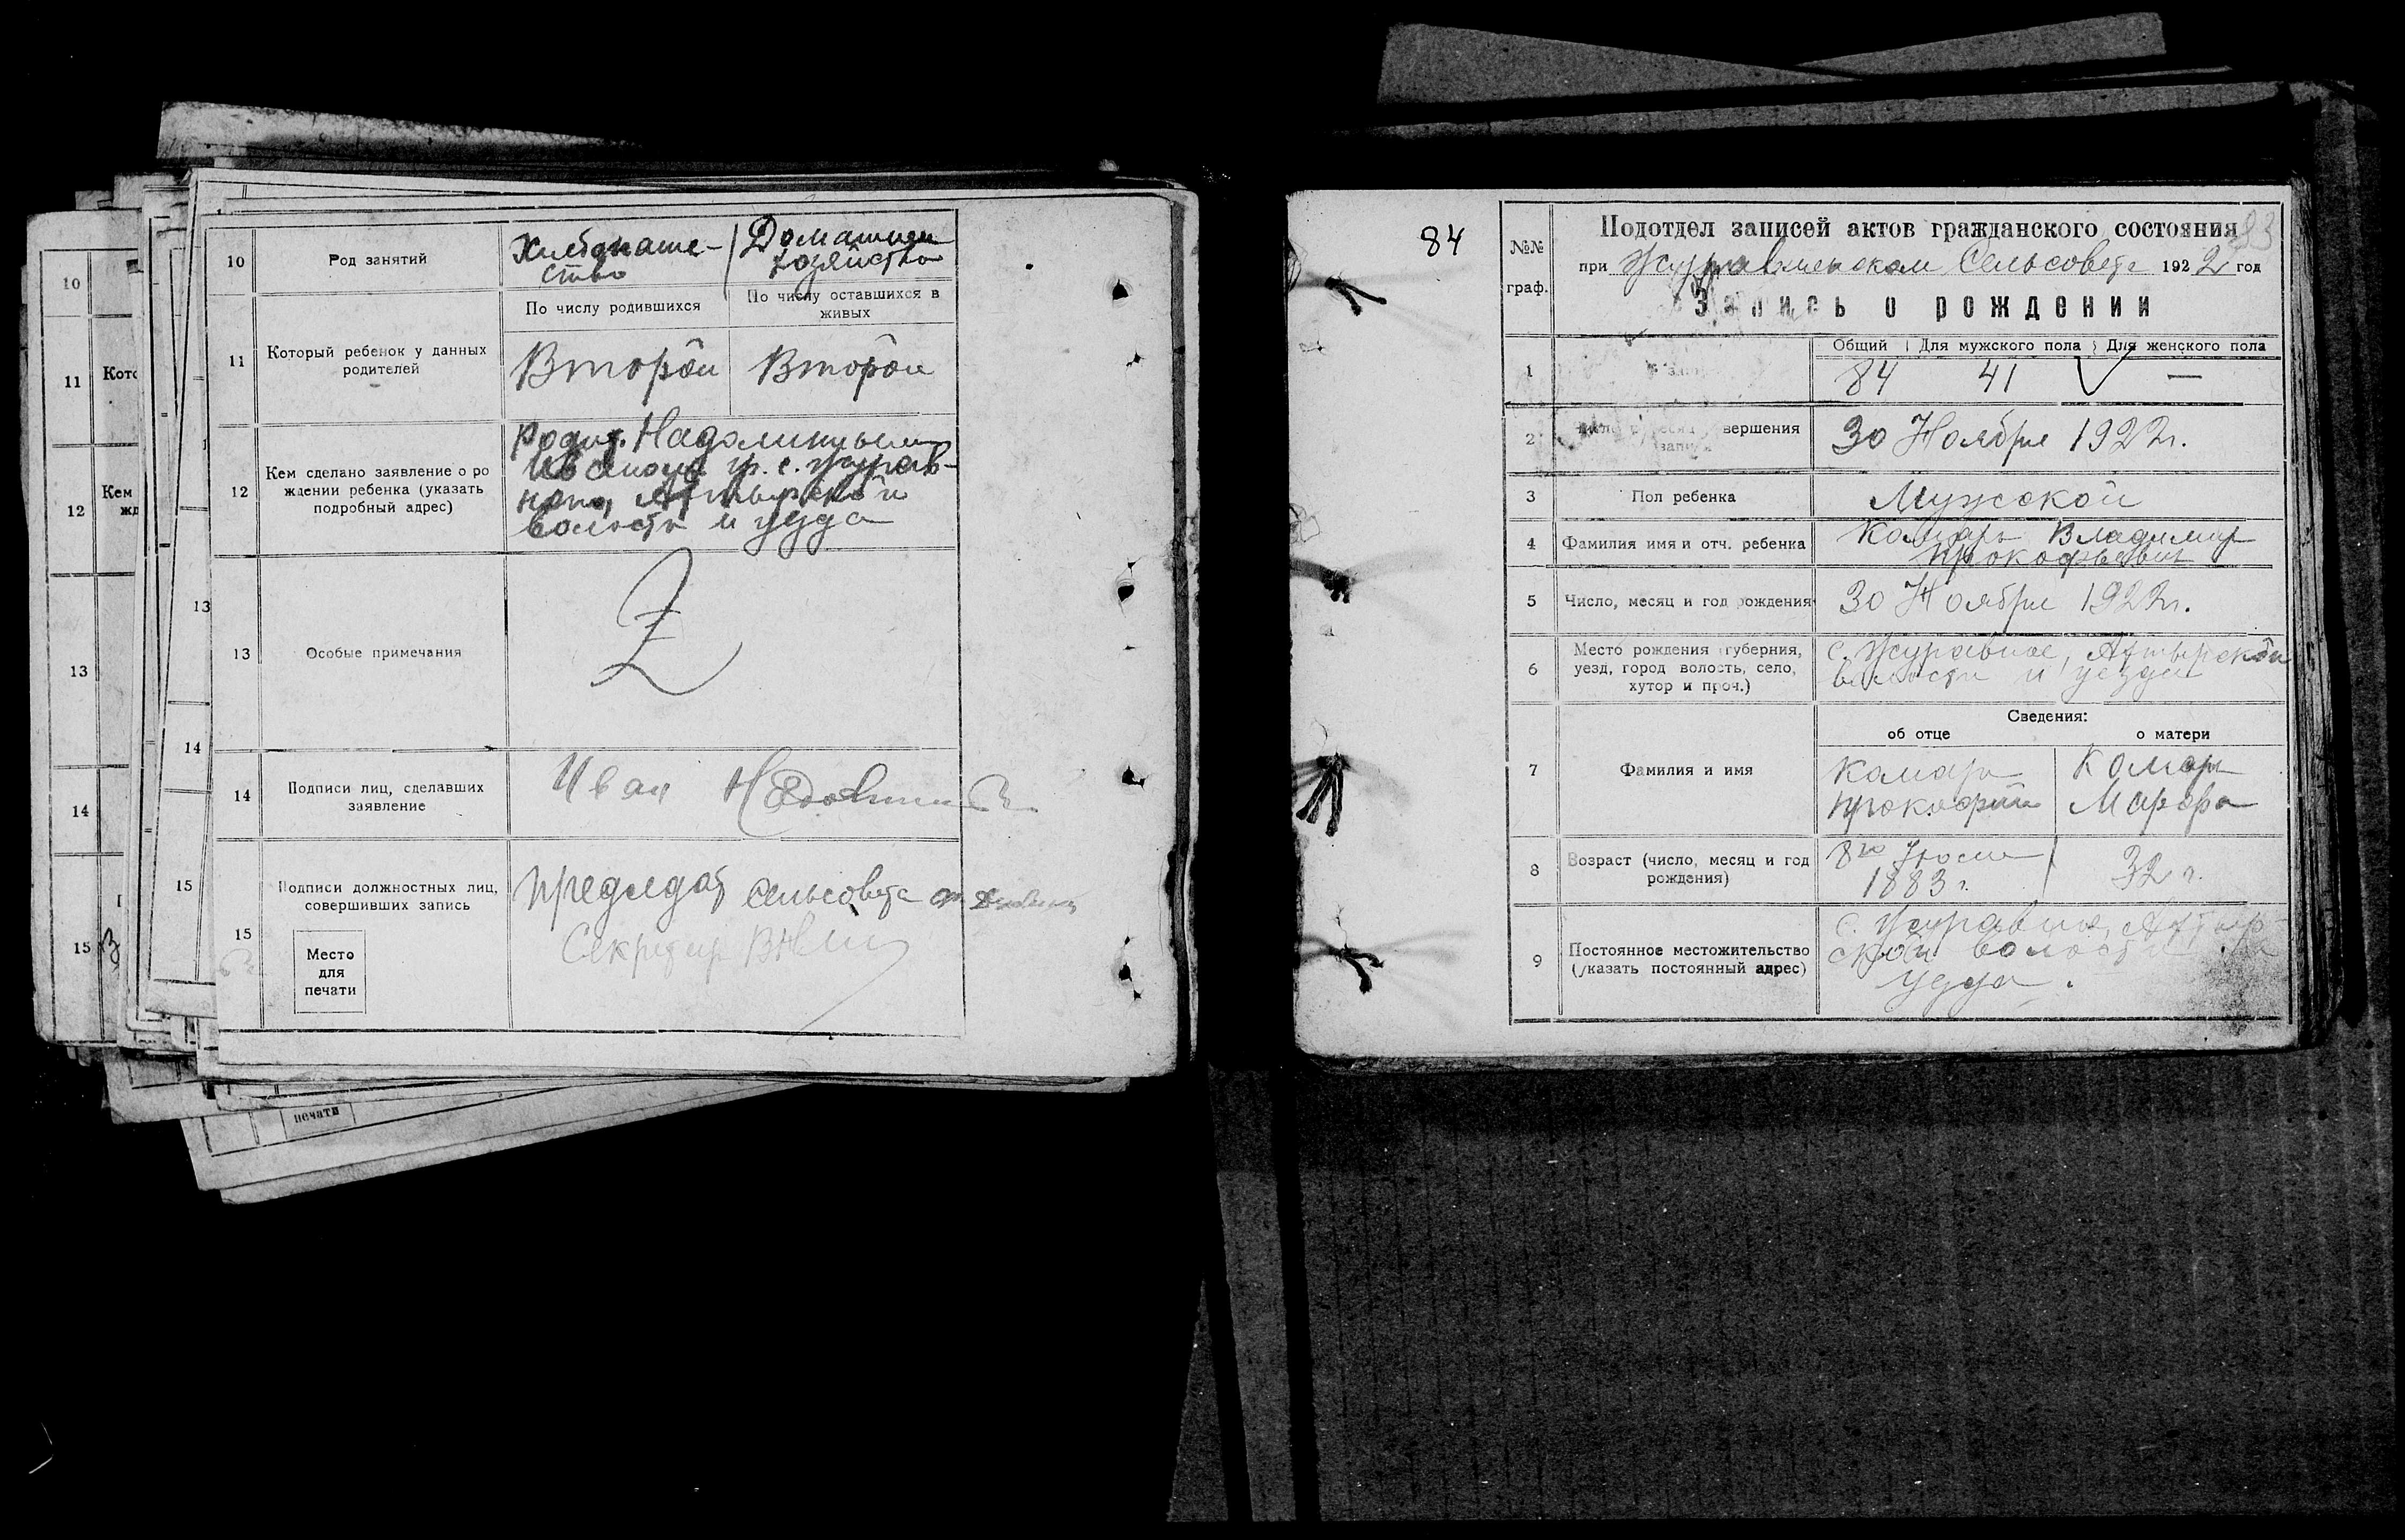 10
Род занятий
Хлебопаше-
ство
Домашнее
хозяйство
11
Который ребенок у данных
родителей
По числу родившихся
По числу оставшихся в
живых
Второй
Второй
12
Кем сделано заявление о ро
ждении ребенка (указать
подробный адрес)
Родит.
Иваном гр. с. Журав-
ного, Ахтырской
волости и уезда
13
Особые примечания
Z
14
Подписи лиц, сделавших
заявление
Иван
15
Подписи должностных лиц,
совершивших запись
Место
для
печати
Председат сельсовета
Секретар
10
11
Кото
12
Кем
жд
13
14
15
13
14
15
печати
84
№№
граф.
Подотдел записей актов гражданского состояния
93
при Журавленском Сельсовете 1922 год
Запись о рождении
1
Общий
Для мужского пола
Для женского пола
84
41
—
2
вершения
30 Ноября 1922 г.
3
Пол ребенка
Мужской
4
Фамилия имя и отч. ребенка
Комарь Владимир
Прокофьевич
5
Число, месяц и год рождения
30 Ноября 1922 г.
6
Место рождения (губерния,
уезд, город волость, село,
хутор и проч.)
с. Журавное, Ахтырской
волости и уезда
7
Фамилия и имя
Сведения:
об отце
о матери
Комарь
Прокофий
Комарь
Марфа
8
Возраст (число, месяц и год
рождения)
8го Июля
1883 г.
32 г.
9
Постоянное местожительство
(указать постоянный адрес)
с. Журавное, Ахтыр-
ской волости и
уезда.